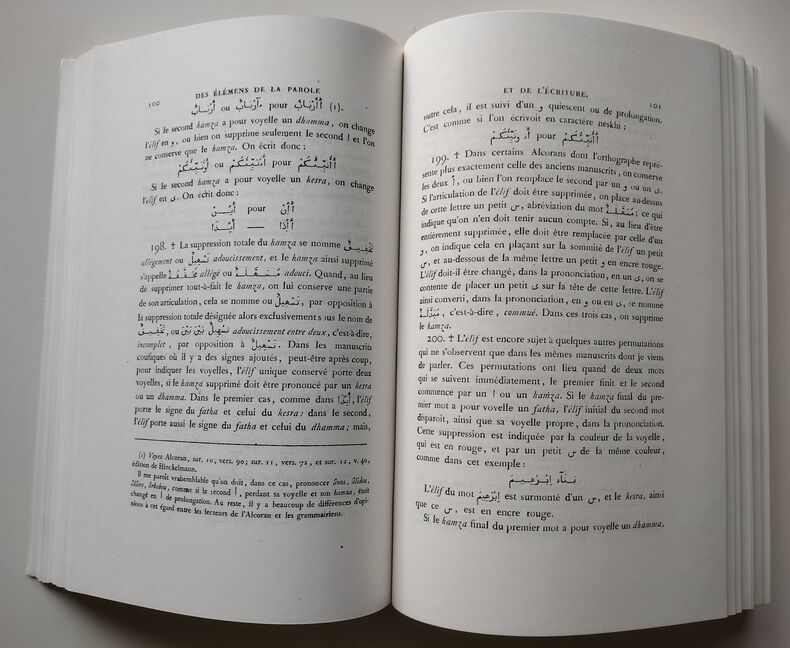 100
DES ÉLÉMENS DE LA PAROLE
أَرْبَابٌ ou أَرْبَابٌ pour أَأَرْبَابٌ (1).
Si le second hamza a pour voyelle un dhamma, on change
l'élif en و, ou bien on supprime seulement le second ا et l'on
ne conserve que le hamza. On écrit donc :
أَوُنَبِّئُكُمْ ou أَءُنَبِّئُكُمْ pour أَأُنَبِّئُكُمْ
Si le second hamza a pour voyelle un kesra, on change
l'élif en ى. On écrit donc :
أَيِنْ pour أَإِنْ
أَيِذَا — أَإِذَا
198. † La suppression totale du hamza se nomme تَخْفِيفٌ
allégement ou تَسْهِيلٌ adoucissement, et le hamza ainsi supprimé
s'appelle مُخَفَّفَةٌ allégé ou مُسَهَّلَةٌ adouci. Quand, au lieu
de supprimer tout-à-fait le hamza, on lui conserve une partie
de son articulation, cela se nomme ou تَسْهِيلٌ, par opposition à
la suppression totale désignée alors exclusivement sous le nom de
تَخْفِيفٌ, ou تَسْهِيلٌ بَيْنَ بَيْنَ adoucissement entre deux, c'est-à-dire,
incomplet, par opposition à تَسْهِيلٌ. Dans les manuscrits
coufiques où il y a des signes ajoutés, peut-être après coup,
pour indiquer les voyelles, l'élif unique conservé porte deux
voyelles, si le hamza supprimé doit être prononcé par un kesra
ou un dhamma. Dans le premier cas, comme dans أَيِذَا, l'élif
porte le signe du fatha et celui du kesra : dans le second,
l'élif porte aussi le signe du fatha et celui du dhamma ; mais,
(1) Voyez Alcoran, sur. 10, vers. 90 ; sur. 11, vers. 72, et sur. 12, v. 40,
édition de Hinckelmann.
Il me paroît vraisemblable qu'on doit, dans ce cas, prononcer
comme si le second ا, perdant sa voyelle et son hamza, étoit
changé en ا de prolongation. Au reste, il y a beaucoup de différences d'opi-
nions à cet égard entre les lecteurs de l'Alcoran et les grammairiens.
ET DE L'ÉCRITURE.
101
outre cela, il est suivi d'un و quiescent ou de prolongation.
C'est comme si l'on écrivoit en caractère neskhi :
أَوُنَبِّئُكُمْ pour أَأُنَبِّئُكُمْ
199. † Dans certains Alcorans dont l'orthographe repré-
sente plus exactement celle des anciens manuscrits, on conserve
les deux أ, ou bien l'on remplace le second par un و ou un ى.
Si l'articulation de l'élif doit être supprimée, on place au-dessus
de cette lettre un petit س, abréviation du mot مُسَهَّلَةٌ ; ce qui
indique qu'on n'en doit tenir aucun compte. Si, au lieu d'être
entièrement supprimée, elle doit être remplacée par celle d'un
و, on indique cela en plaçant sur la sommité de l'élif un petit
س, et au-dessous de la même lettre un petit و en encre rouge.
L'élif doit-il être changé, dans la prononciation, en un ى, on se
contente de placer un petit ى sur la tête de cette lettre. L'élif
ainsi converti, dans la prononciation, en و ou en ى, se nomme
مُبَدَّلَةٌ, c'est-à-dire, commué. Dans ces trois cas, on supprime
le hamza.
200. † L'élif est encore sujet à quelques autres permutations
qui ne s'observent que dans les mêmes manuscrits dont je viens
de parler. Ces permutations ont lieu quand de deux mots
qui se suivent immédiatement, le premier finit et le second
commence par un ا ou un hamza. Si le hamza final du pre-
mier mot a pour voyelle un fatha, l'élif initial du second mot
disparoît, ainsi que sa voyelle propre, dans la prononciation.
Cette suppression est indiquée par la couleur de la voyelle,
qui est en rouge, et par un petit س de la même couleur,
comme dans cet exemple :
بَنَآءَ إِبْرَهِيمَ
L'élif du mot إِبْرَهِيمَ est surmonté d'un س, et le kesra, ainsi
que ce س, est en encre rouge.
Si le hamza final du premier mot a pour voyelle un dhamma,